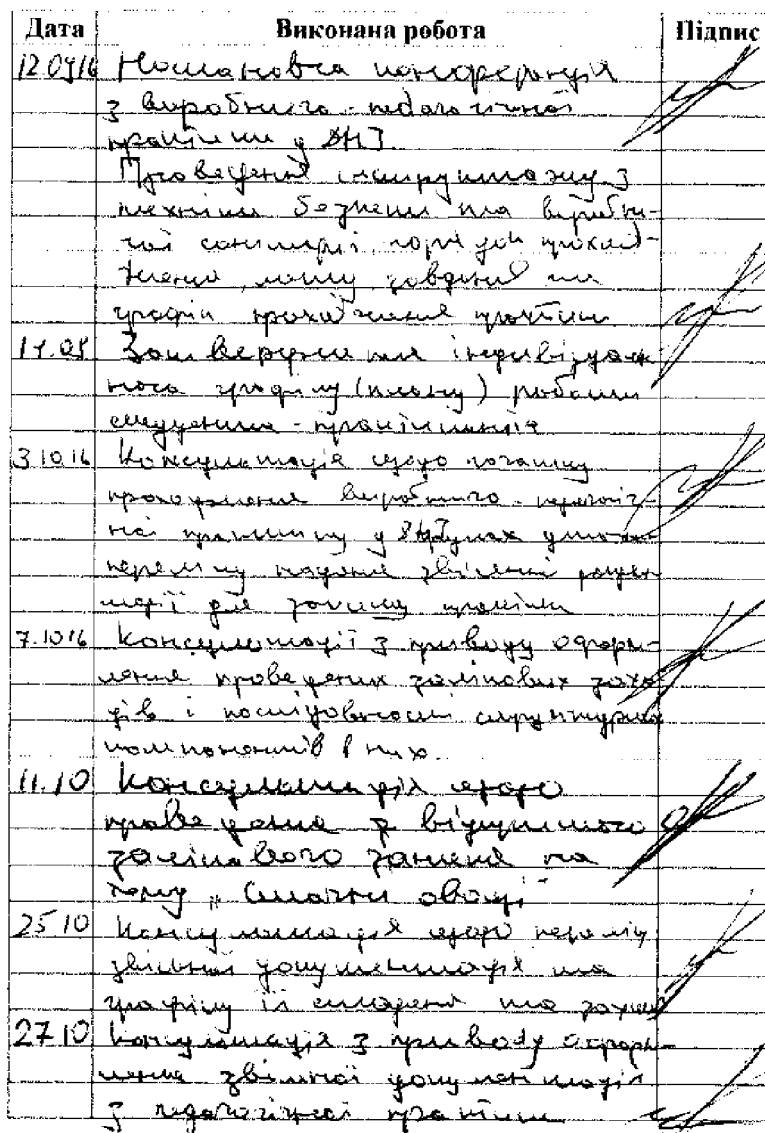 Дата Виконана робота Підпис
12.09.16 конференція
з виробничо-педагогічної
практики у ДНЗ.
Проведення інструктажу з
техніки безпеки та виробни-
чої санітарії, порядок проход-
ження, мету, завдання та
графік проходження практики
Затвердження індивідуаль-
ного графіку (плану) роботи
студента-практиканта
3.10.16 Консультація щодо початку
проходження виробничо-педагогіч-
ної практики у
переліку надання звітної докумен-
тації для захисту практики
7.10.16 Консультації з приводу оформ-
лення проведених залікових захо-
дів і послідовності структурних
компонентів в них.
11.10 Консультація щодо
проведення відкритого
залікового заняття на
тему „Смачні овочі
25.10 Консультація щодо переліку
звітньої документації та
графіку їх складення та
27.10 Консультація з приводу оформ-
лення звітної документації
з педагогічної практики